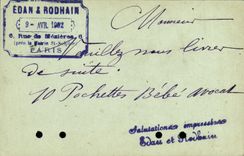 EDAN & RODHAIN
2 - AVR. 1902
6, Rue de Mézières, 6
(près la Mairie St-Sulpice)
PARIS
Monsieur
Veuillez nous livrer
de suite
10 Pochettes Bébé avocat
Salutations empressées
Edan et Rodhain